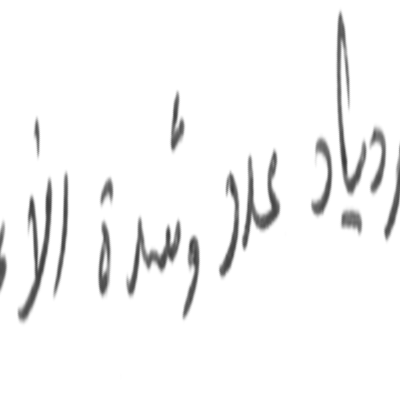 ردياد عدد وشدة الأ